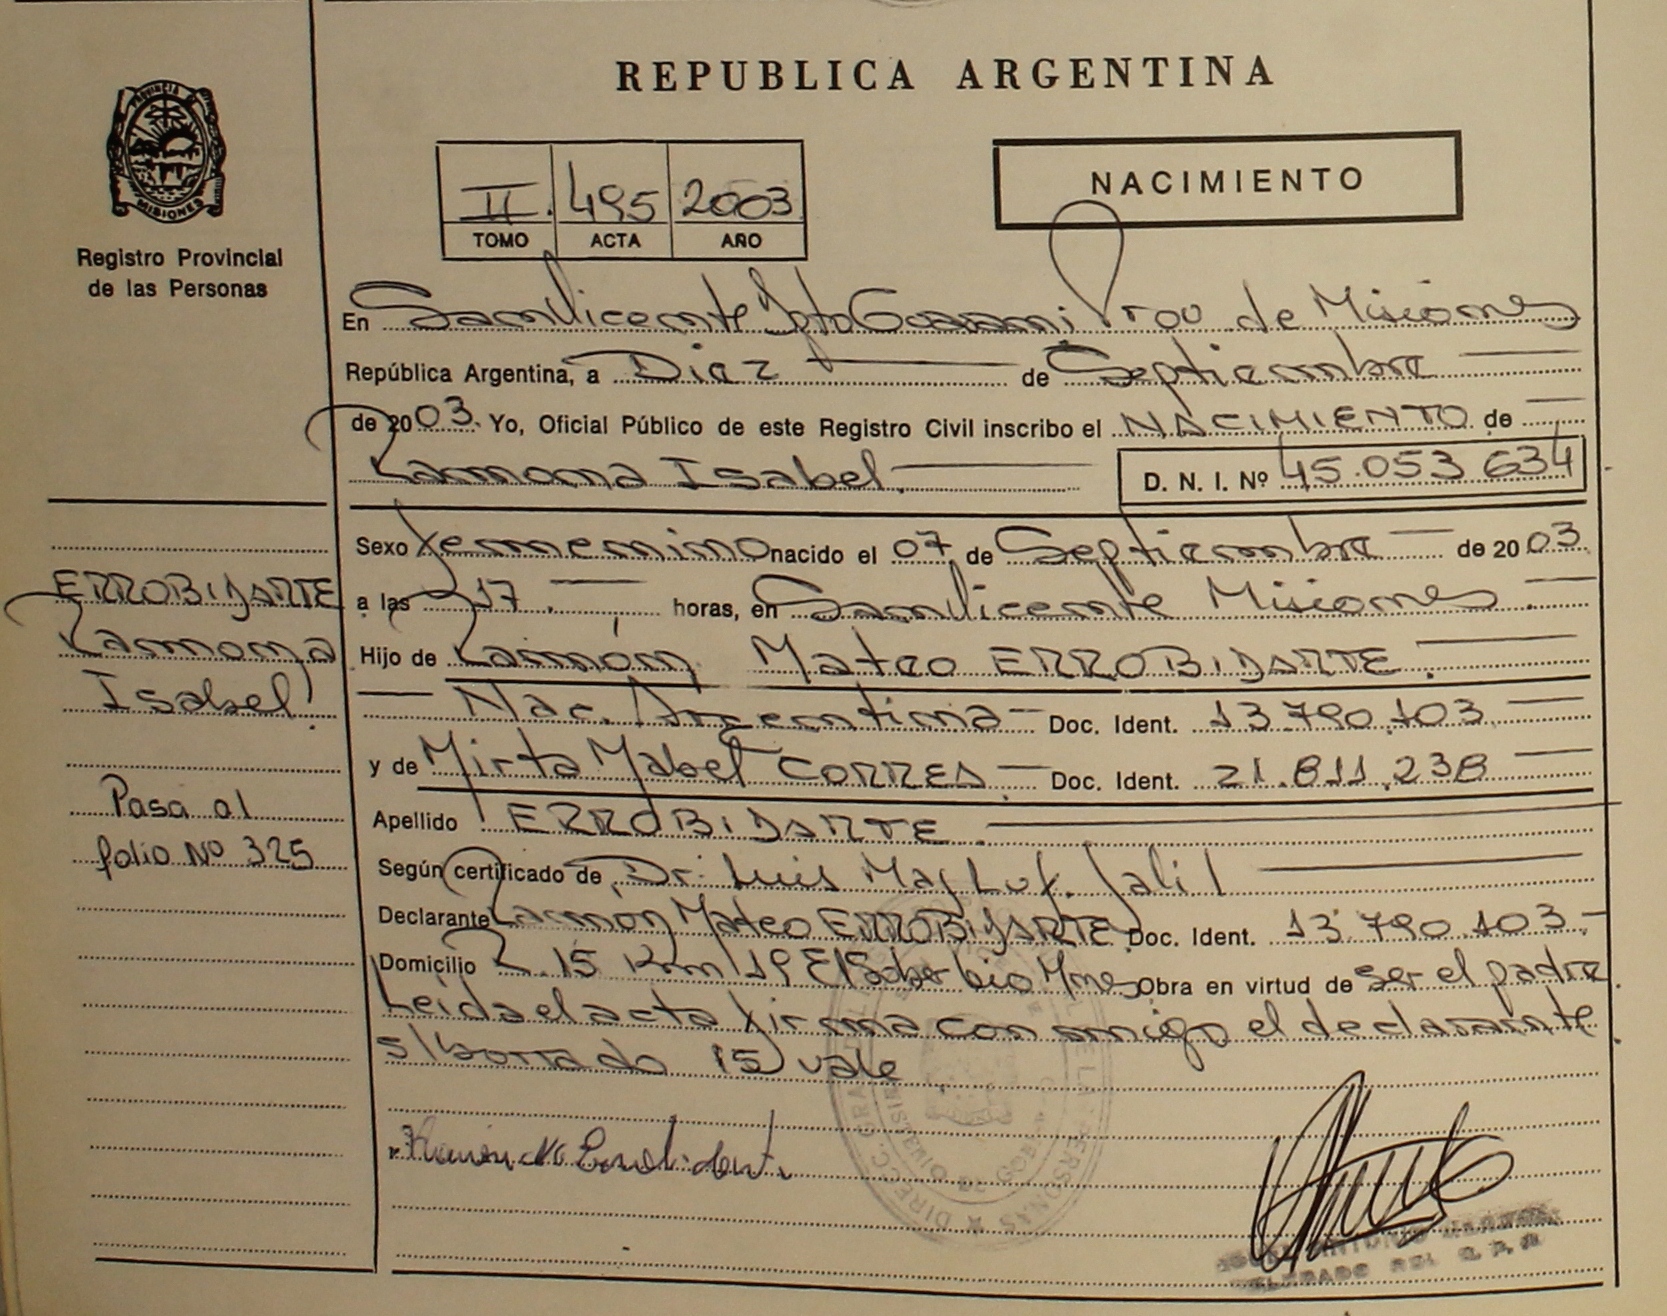 REPUBLICA ARGENTINA
PROVINCIA DE
MISIONES
Registro Provincial
de las Personas
II. 495 2003
TOMO ACTA AÑO
NACIMIENTO
En San Vicente Dpto Guarani; Prov de Misiones
República Argentina, a Diez de Septiembre
de 2003. Yo, Oficial Público de este Registro Civil inscribo el NACIMIENTO de
Ramona Isabel. D. N. I. Nº 45.053 634
Sexo femenino nacido el 07 de Septiembre de 2003.
a las 17. horas, en San Vicente Misiones.
Hijo de Ramón Mateo ERROBIDARTE.
Nac. Argentina Doc. Ident. 13.790.103
y de Mirta Mabel CORREA. Doc. Ident. 21.811.238
Apellido ERROBIDARTE.
Según certificado de Dr. Luis Jalil
Declarante Ramón Mateo ERROBIDARTE Doc. Ident. 13.790.103
Domicilio R. 15 Km 19 El Soberbio Mnes Obra en virtud de ser el padre
Leida el acta firma con migo el declarante
s/borrado 15 vale
ERROBIDARTE
Ramona
Isabel.
Pasa al
folio Nº 325